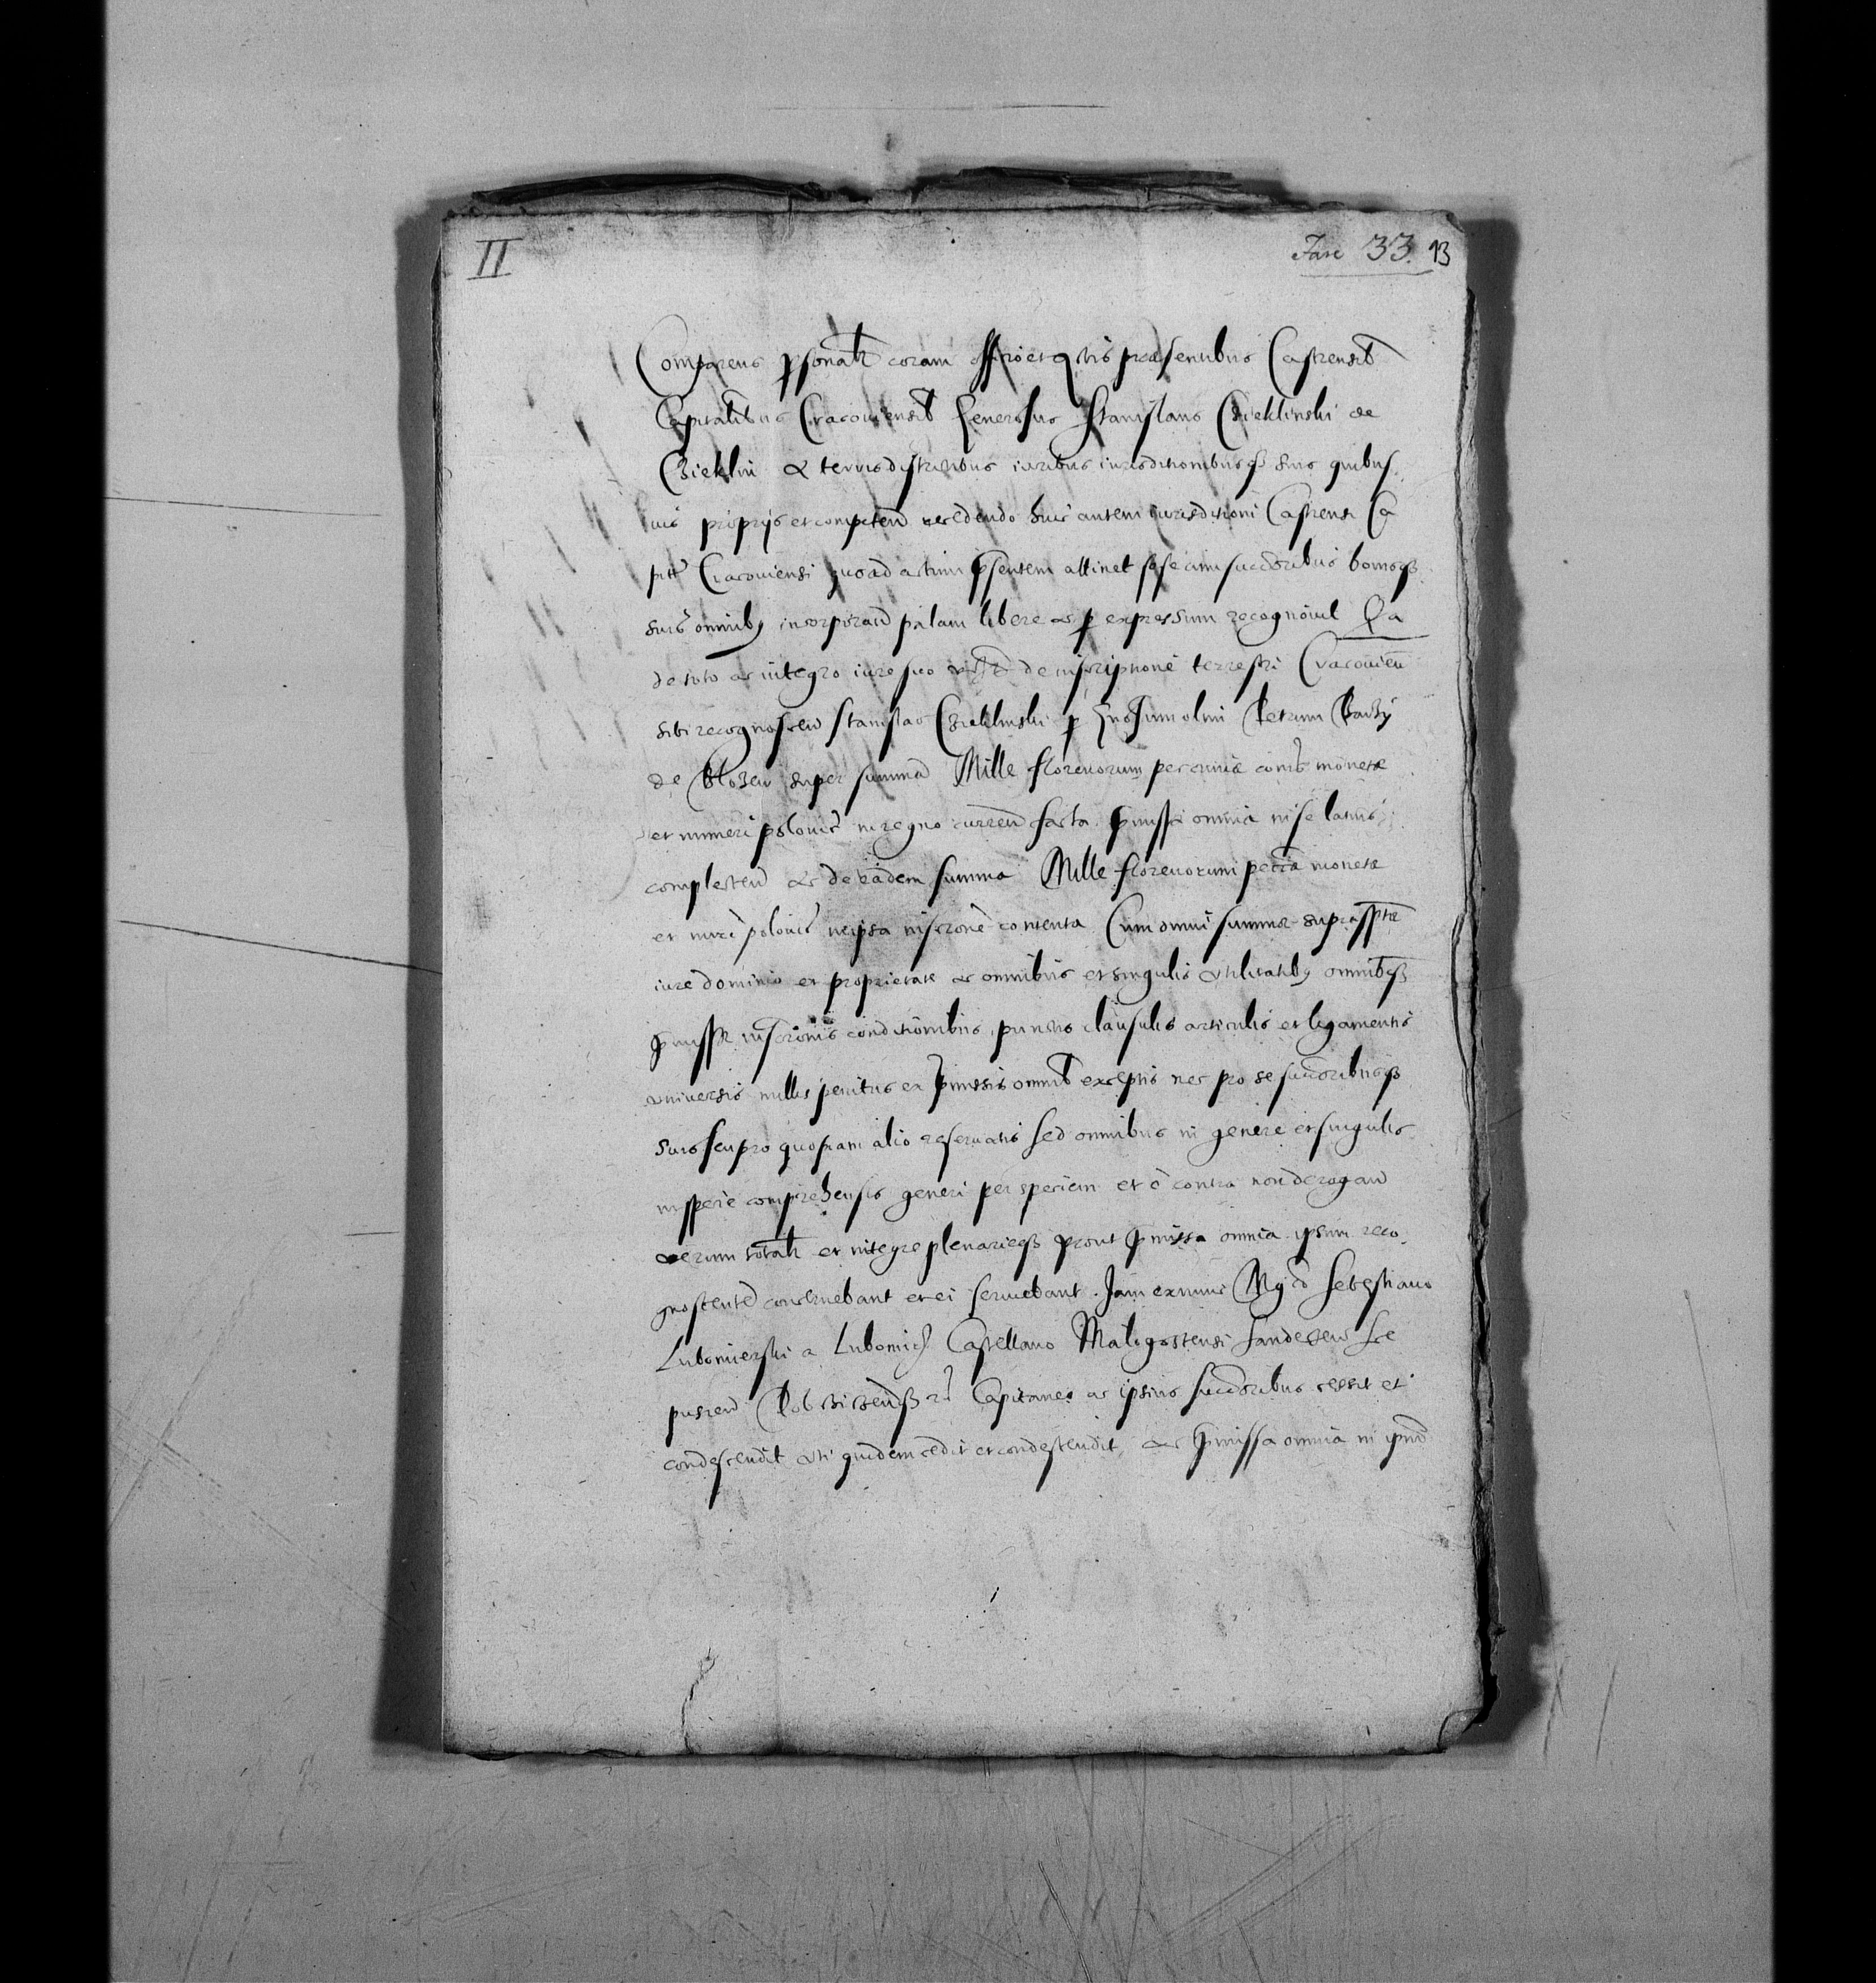 II
Fasc 33. 13
Comparens psonalr coram offio et actis praesentibus Castrensib
Capitalibus Cracoviensib Generosus Stanislaus Czieklinski de
Czieklin & terris districtibus iuribus iurisditionibusq suis quibus
uis proprys et competen recedendo huic autem iurisditioni Castrensi Ca
pitt Cracouiensi quoad actum psentem attinet sese cum succoribus bonisq
suis omnib incorporan palam libere ac p expressum recognouit Qa
de toto ac integro iure suo de inscriptione terrestri Cracouien
sibi recognoscen Stanislao Czieklinski p Gnosum olim Petrum
de super summa Mille florenorum pecuniae comis monetae
et numeri polonic in regno curren facta pmissa omnia in se latius
complecten ac de eadem summa Mille florenorum pecia monetae
et nurì polonic in ipsa inscrone contenta Cum omni summae suprasptae
iure dominio et proprietate ac omnibus et singulis vtilitatib omnibq
pmissae inscrionis conditionibus punctis clausulis articulis et ligamentis
vniuersis nullis penitus ex pmissis omnib exceptis nec pro se succoribusq
suis seu pro quopiam alio reseruatis sed omnibus in genere et singulis
in specie comprehensis generi per speciem et è contra non derogan
verum totalr et integre plenarieq prout pmissa omnia ipsum reco
gnoscente concernebant et ei seruiebant. Jam ex nunc Mgco Sebestiano
Lubomierski a Lubomierz Castellano Malogostensi Sandecen Sce
pusien Dobczicenq rt Capitaneo ac ipsius succoribus cessit et
condescendit vti quidem cedit et condescendit, ac pmissa omnia in ipm